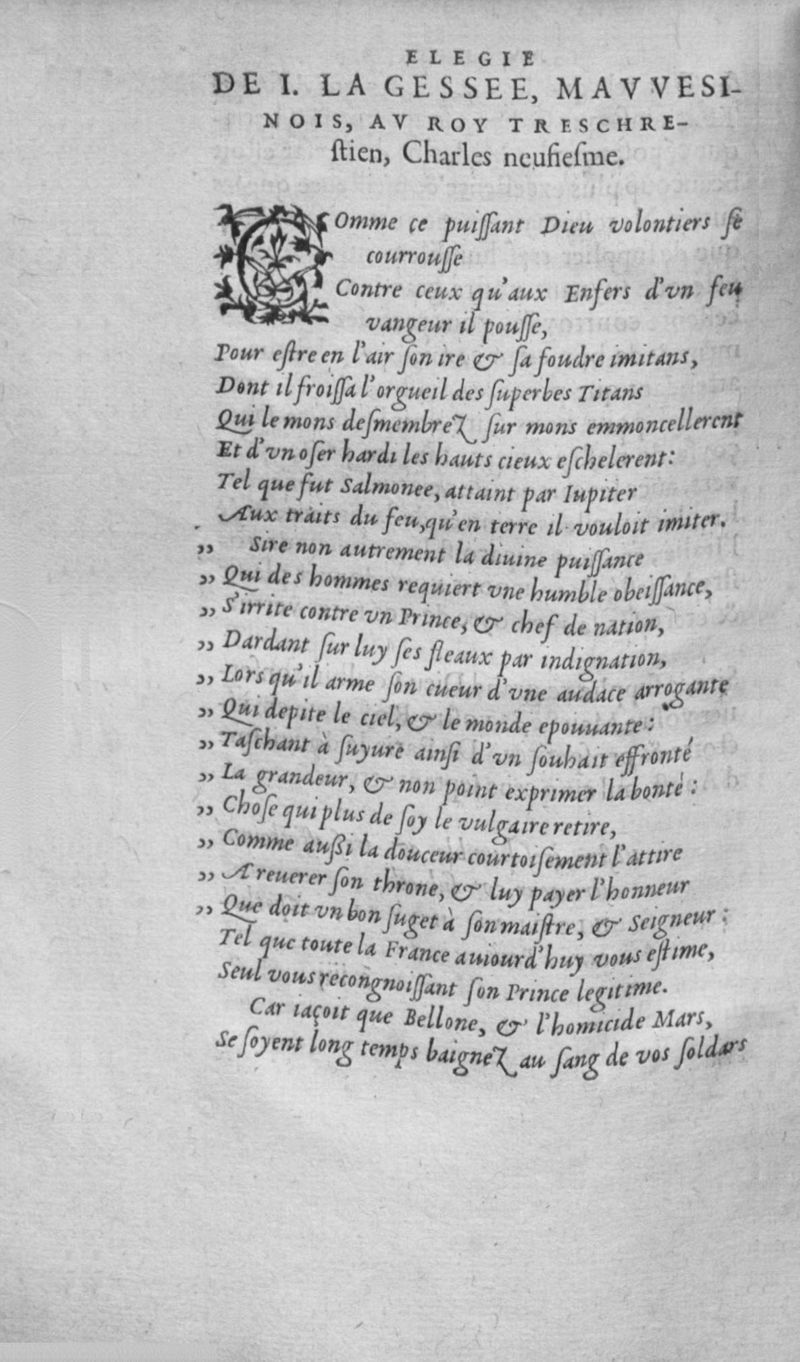 ELEGIE
DE I. LA GESSEE, MAVVESI-
NOIS, AV ROY TRESCHRE-
ſtien, Charles neufieſme.
Comme ce puiſſant Dieu volontiers ſe
courrouſſe
Contre ceux qu'aux Enfers d'vn feu
vangeur il pouſſe,
Pour eſtre en l'air ſon ire & ſa foudre imitans,
Dont il froiſſa l'orgueil des ſuperbes Titans
Qui le mons deſmembrez ſur mons emmoncellerent
Et d'vn oſer hardi les hauts cieux eſchelerent:
Tel que fut Salmonee, attaint par Iupiter
Aux traits du feu, qu'en terre il vouloit imiter.
,, Sire non autrement la diuine puiſſance
,, Qui des hommes requiert vne humble obeiſſance,
,, S'irrite contre vn Prince, & chef de nation,
,, Dardant ſur luy ſes fleaux par indignation,
,, Lors qu'il arme ſon cueur d'vne audace arrogante
,, Qui depite le ciel, & le monde epouuante:
,, Taſchant à ſuyure ainſi d'vn ſouhait effronté
,, La grandeur, & non point exprimer la bonté:
,, Choſe qui plus de ſoy le vulgaire retire,
,, Comme außi la douceur courtoiſement l'attire
,, A reuerer ſon throne, & luy payer l'honneur
,, Que doit vn bon ſuget à ſon maiſtre, & Seigneur:
Tel que toute la France auiourd'huy vous eſtime,
Seul vous recongnoiſſant ſon Prince legitime.
Car iaçoit que Bellone, & l'homicide Mars,
Se ſoyent long temps baignez au ſang de vos ſoldars